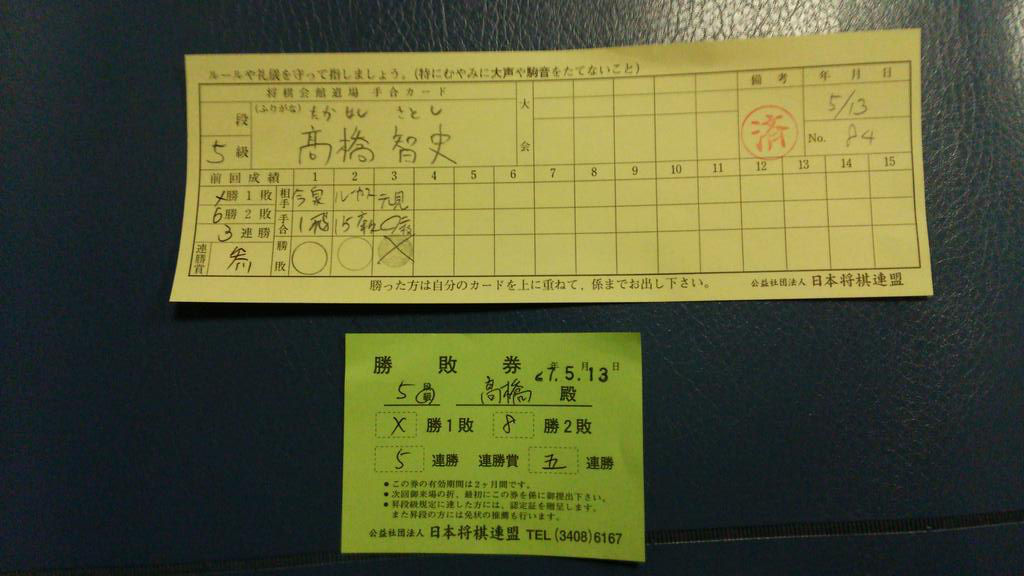 ルールや礼儀を守って指しましょう。(特にむやみに大声や駒音をたてないこと)
将棋会館道場 手合カード
大会
備考
年 月 日
5/13
(ふりがな) たかはし さとし
段
5級
髙橋 智史
済
No. 84
前回成績 1 2 3 4 5 6 7 8 9 10 11 12 13 14 15
X勝1敗 相手 今泉 ルーカス
6勝2敗 手合
3連勝 勝敗
連勝賞 参
勝った方は自分のカードを上に重ねて、係までお出し下さい。
公益社団法人 日本将棋連盟
勝敗券
27.5.13
年 月 日
5級 髙橋 殿
X 勝1敗 8 勝2敗
5 連勝 連勝賞 五 連勝
●この券の有効期間は2ヶ月間です。
●次回御来場の折、最初にこの券を係に御提出下さい。
●昇段級規定に達した方には、認定証を贈呈します。
また昇段の方には免状の推薦も行います。
公益社団法人 日本将棋連盟 TEL (3408)6167